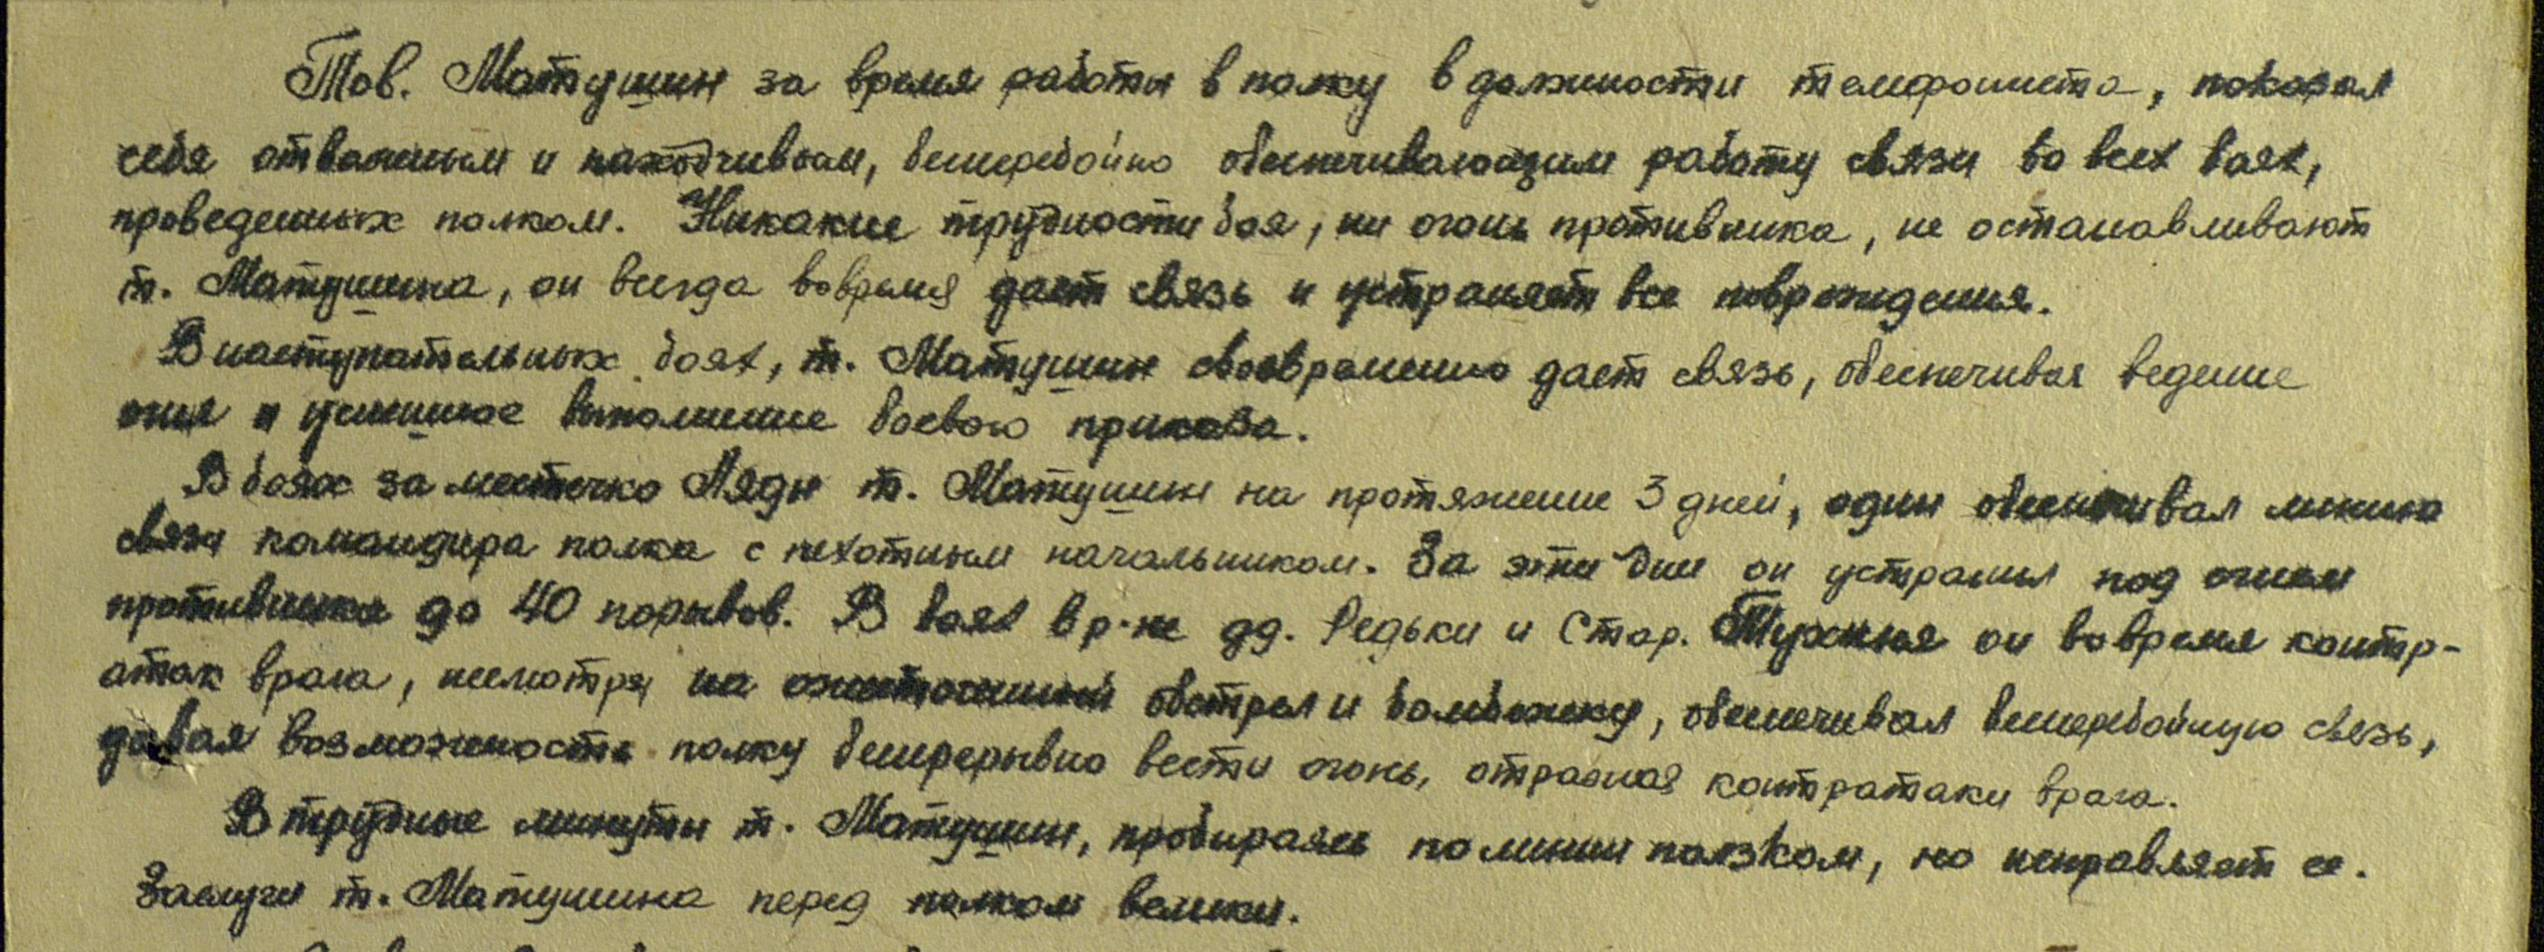 Тов. Матушин за время работы в полку в должности телефониста, показал
себя отважным и находчивым, бесперебойно обеспечивающим работу связи во всех боях,
проведенных полком. Никакие трудности боя, ни огонь противника, не останавливают
т. Матушина, он всегда вовремя дает связь и устраняет все повреждения.
В наступательных боях, т. Матушин своевременно дает связь, обеспечивая ведение
огня и успешное выполнение боевого приказа.
В боях за местечко Ляды т. Матушин на протяжение 3 дней, один обеспечивал линию
связи командира полка с пехотным начальником. За эти дни он устранил под огнем
противника до 40 порывов. В боях в р-не дд. Редьки и Стар. Тухиня он во время контр-
атак врага, несмотря на ожесточенный обстрел и бомбежку, обеспечивал бесперебойную связь,
давая возможность полку беспрерывно вести огонь, отражая контратаки врага.
В трудные минуты т. Матушин, пробираясь по линии ползком, но исправляет ее.
Заслуги т. Матушина перед полком велики.